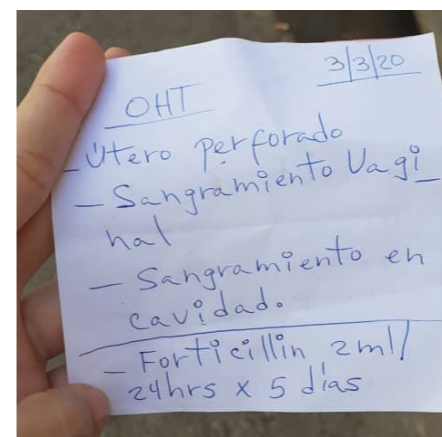 3/3/20
OHT
- Útero perforado
- Sangramiento Vagi_
nal
- Sangramiento en
cavidad.
- Forticillin 2ml/
24hrs x 5 días